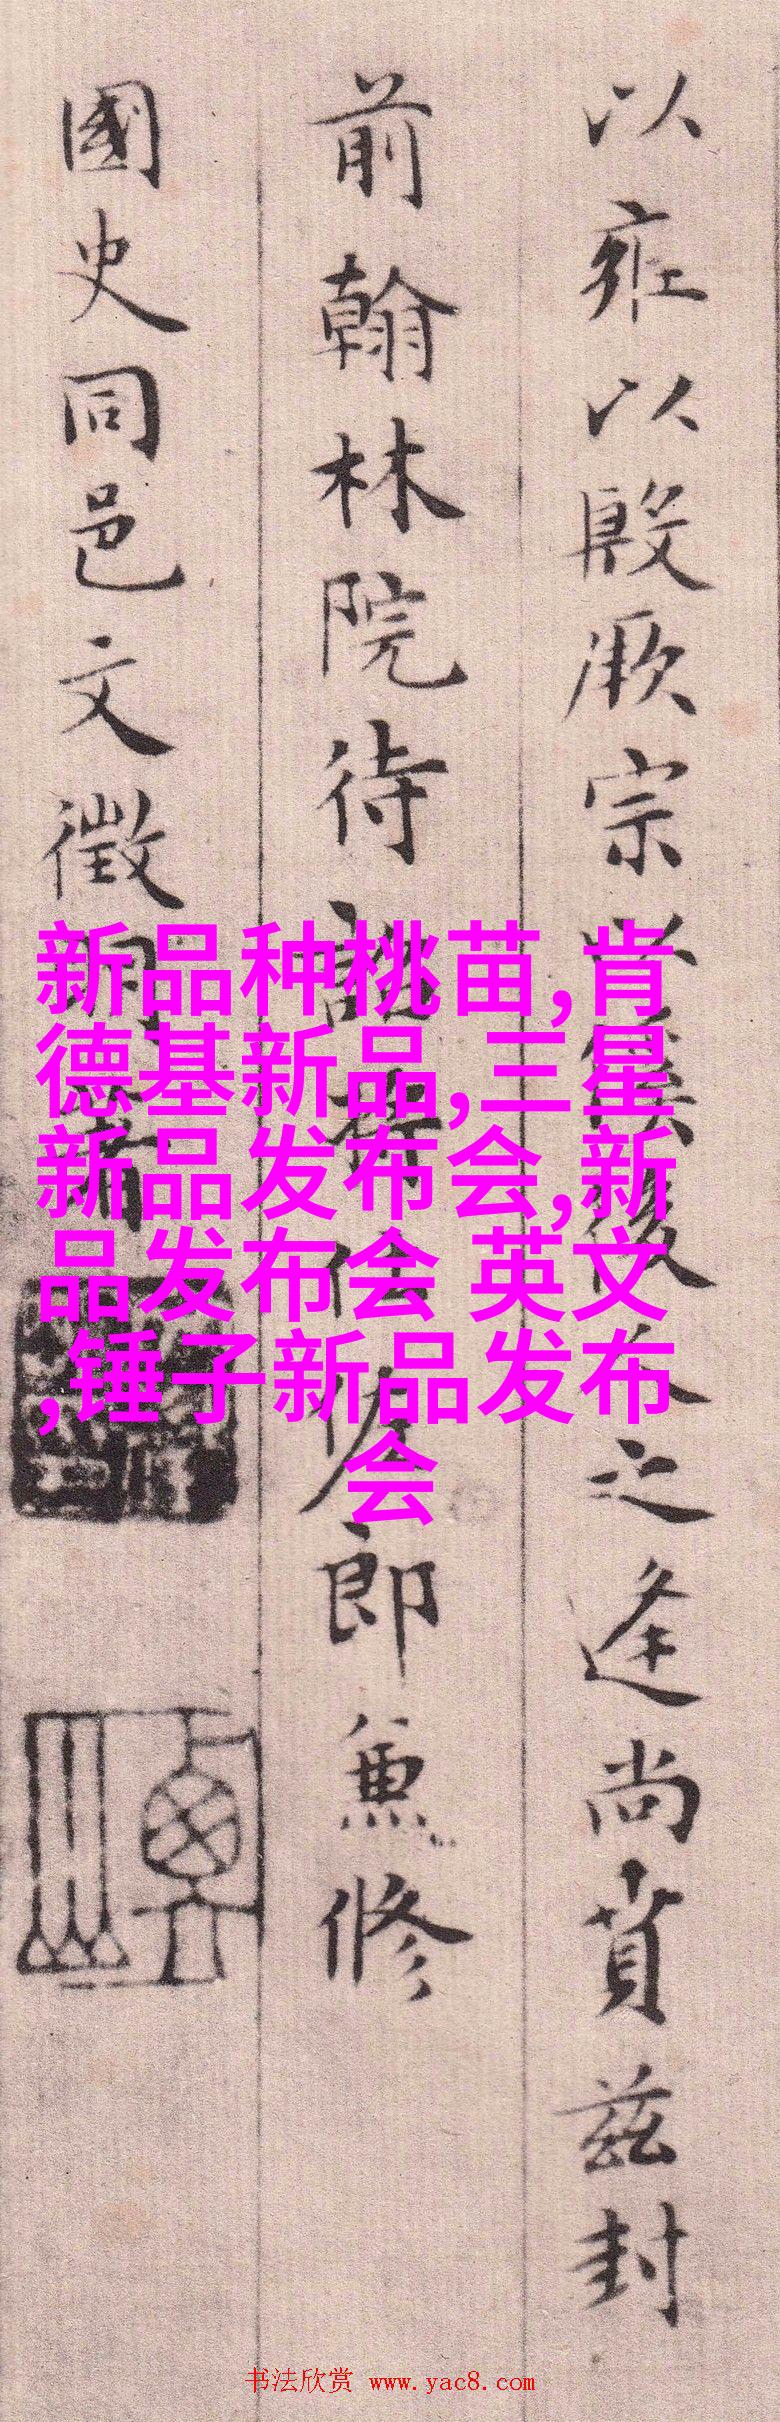 以雍以殷厥宗
後人之逢尚賁茲封
前翰林院待詔將仕佐郎兼修
國史同邑文徵明書
新品种桃苗,肯
德基新品,三星
新品发布会,新
品发布会 英文
,锤子新品发布
会
书法欣赏 www.yac8.com